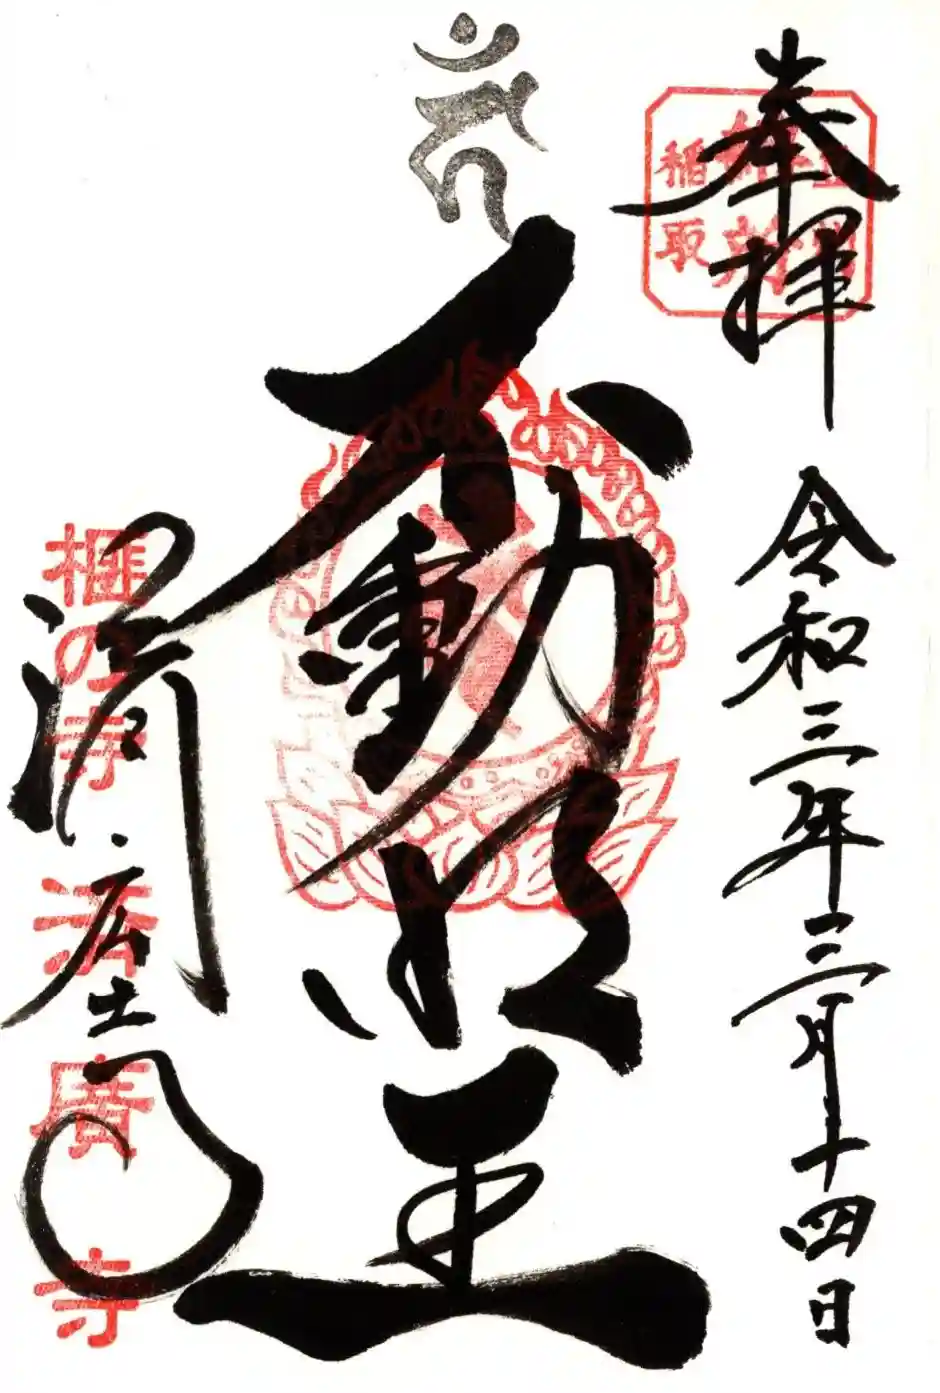 奉拝
令和三年三月十四日
稲取
不動明王
済広寺
榧の寺 済廣寺